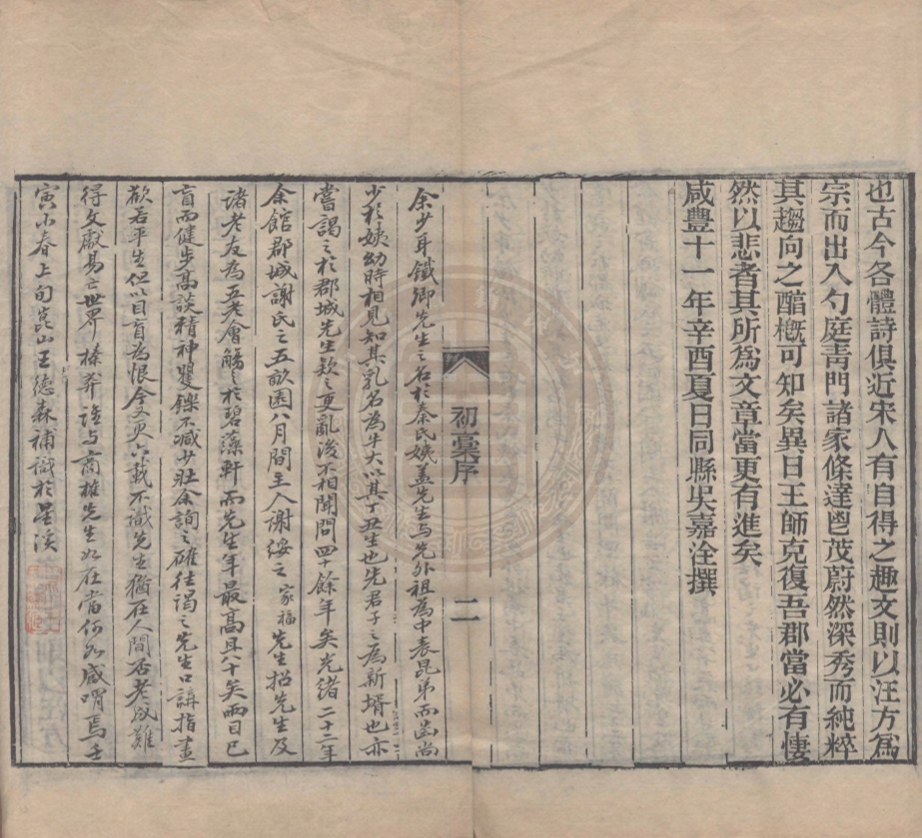 也古今各體詩俱近宋人有自得之趣文則以汪方爲
宗而出入勺庭靑門諸家條達鬯茂蔚然深秀而純粹
其趨向之醕槪可知矣異日王師克復吾郡當必有悽
然以悲者其所爲文章當更有進矣
咸豐十一年辛酉夏日同縣吳嘉洤撰
初稾序
二
余少耳鐵卿先生之名於秦氏姨蓋先生与先外祖為中表昆弟而齒尚
少於姨幼時相見知其乳名為牛大以其丁丑生也先君子之為新壻也亦
嘗謁之於郡城先生欵之更亂後不相聞問四十餘年矣光緒二十二年
余館郡城謝氏之五畝園八月間主人謝綏之家福先生招先生及
諸老友為五老會觴之於碧藻軒而先生年最高且八十矣兩目已
盲而健步高談精神矍鑠不減少壯余詢之確往謁之先生口講指畫
欲若平生但以目盲為恨今又六載不識先生猶在人間否老成難
得文獻易亡世界榛莽誰与商搉先生如在當何如感喟焉壬
寅小春上旬崑山王德森補識於星溪